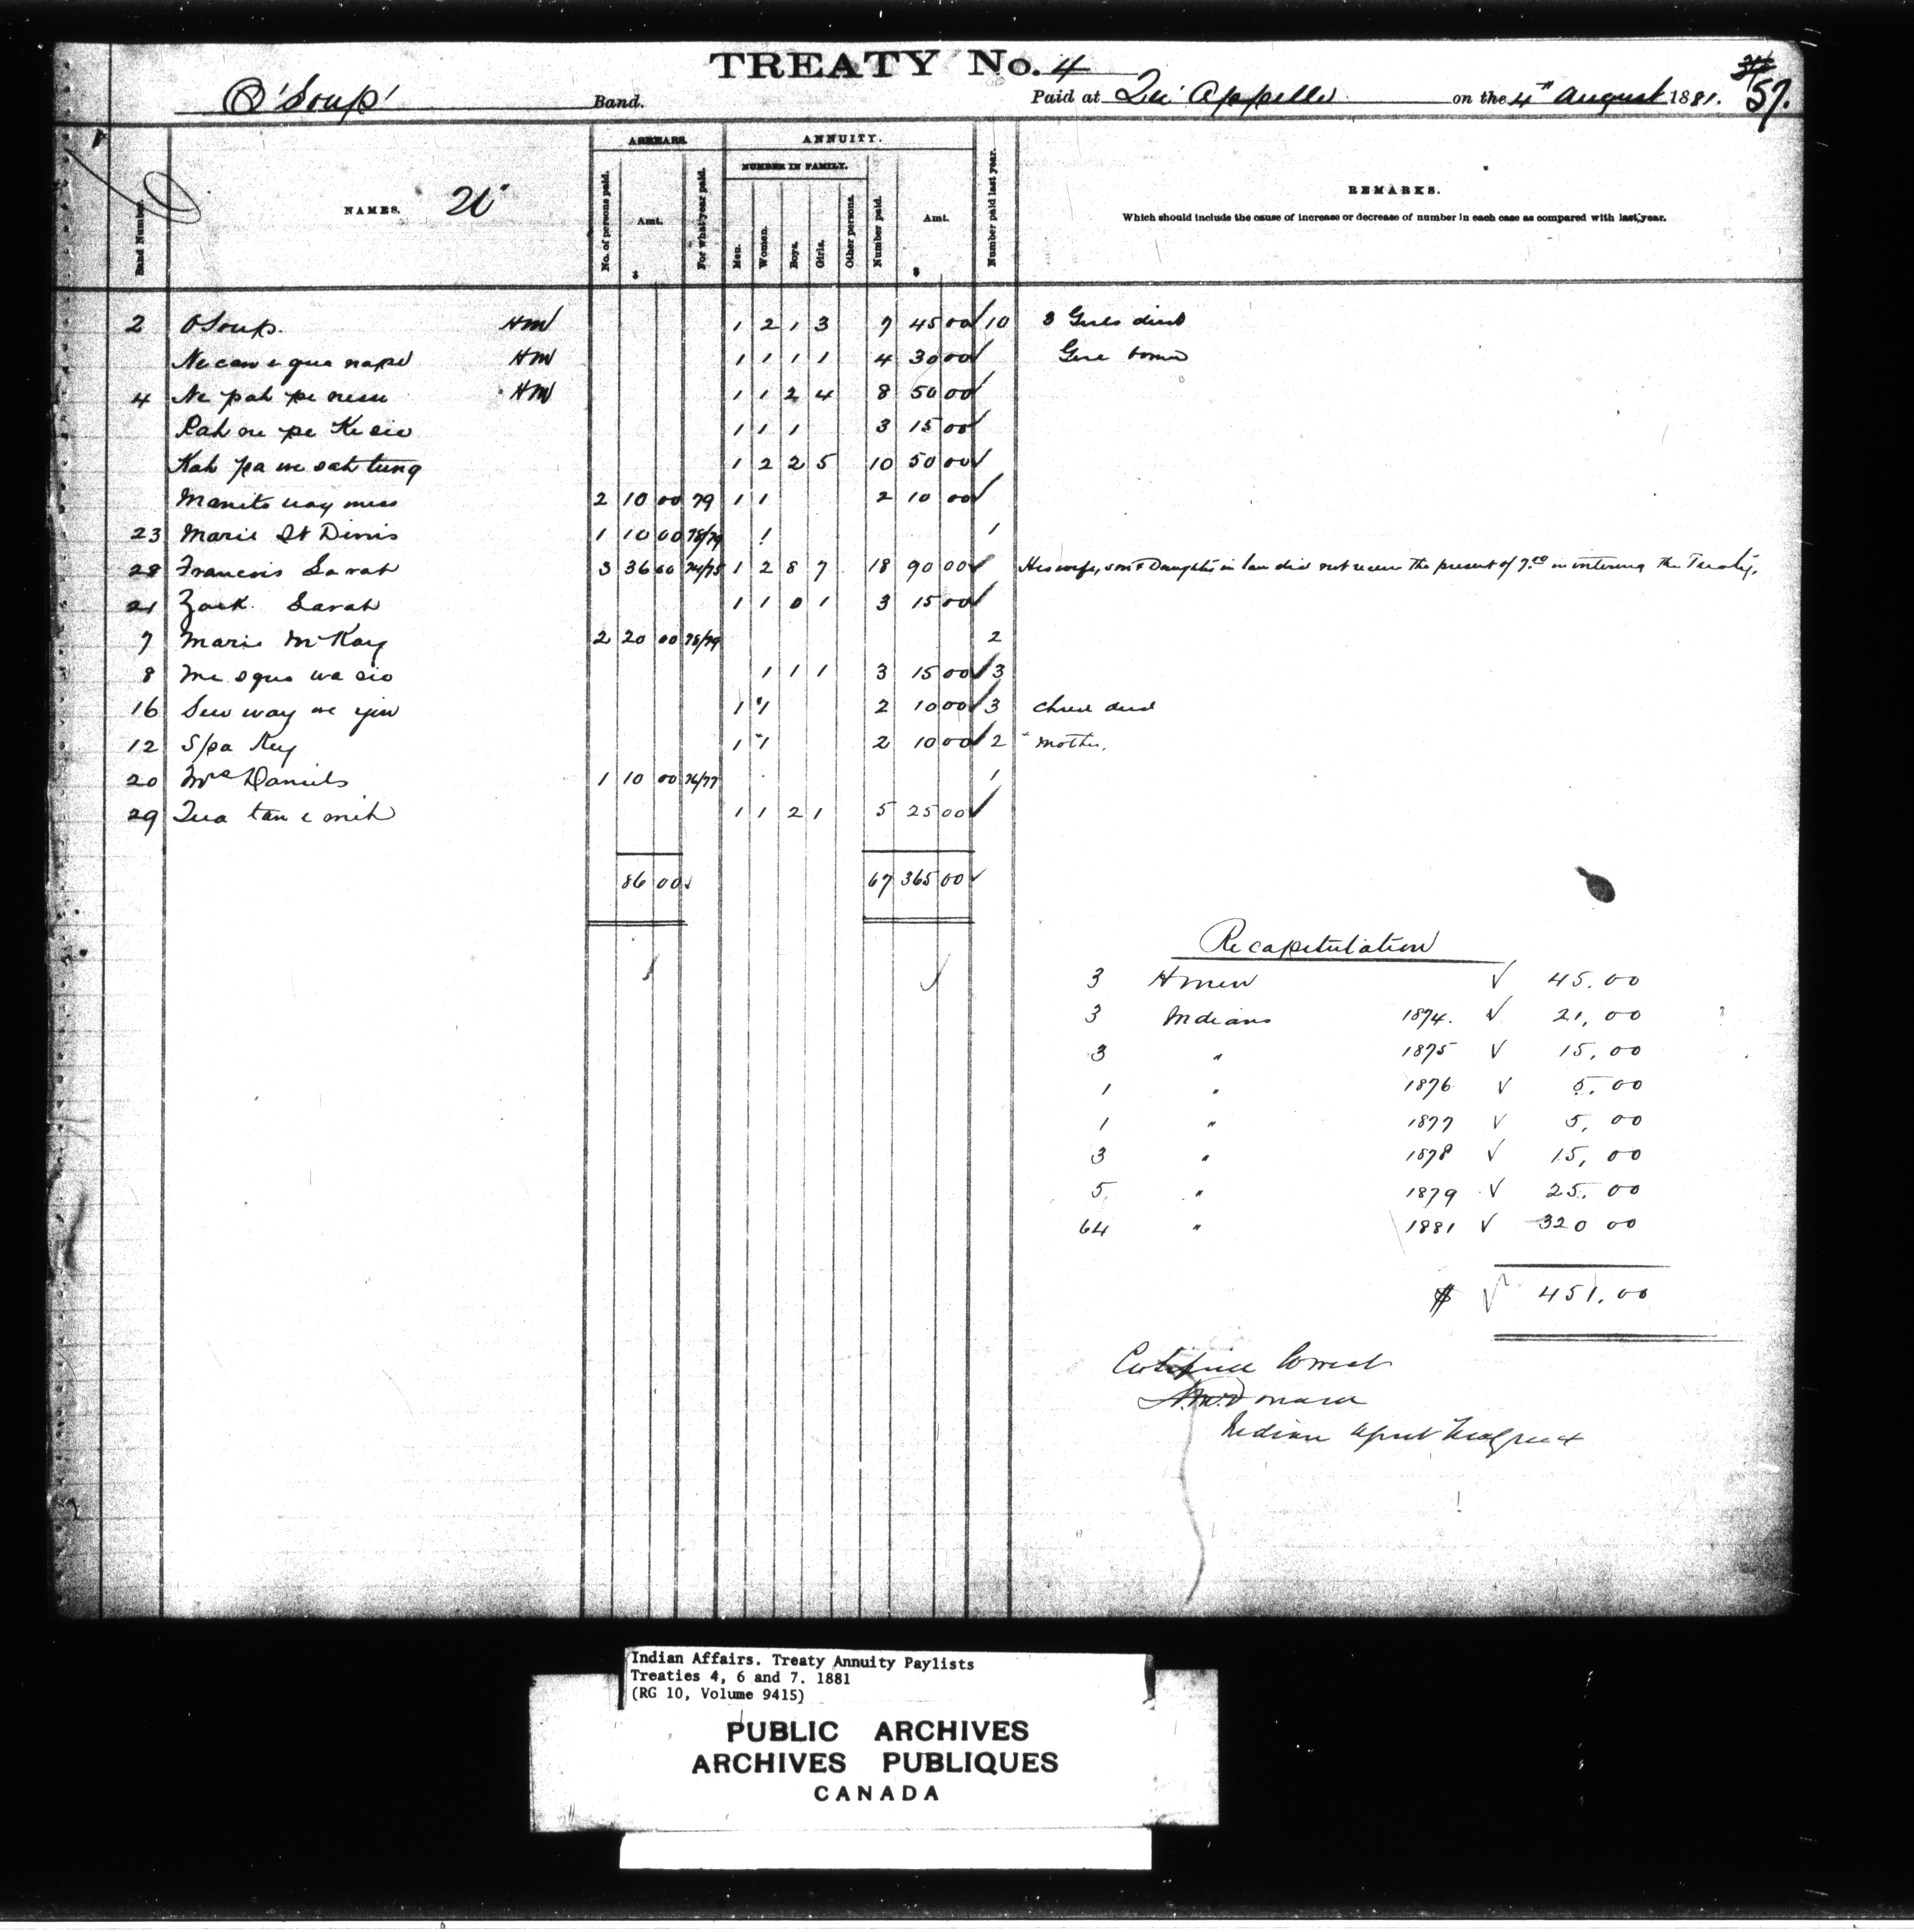 TREATY No. 4
O'Soup' Band. Paid at Qu'Appelle on the 4th August 1881. 57.
ARREARS. ANNUITY.
NUMBER IN FAMILY.
Band Number. NAMES. No. of persons paid. Amt. For what year paid. Men. Women. Boys. Girls. Other persons. Number paid. Amt. Number paid last year. REMARKS.
Which should include the cause of increase or decrease of number in each case as compared with last year.
$ $
2 O'Soup. HM 1 2 1 3 7 45 00 10 3 Girls died
Ne can e qua nape HM 1 1 1 1 4 30 00 Girl born
4 Ne pah pe ness HM 1 1 2 4 8 50 00
Pah me pe Ke sic 1 1 1 3 15 00
Kah pa we sah tung 1 2 2 5 10 50 00
Manito way mis 2 10 00 79 1 1 2 10 00
23 Marie St Dinis 1 10 00 78/79 1 1
28 Francois Sarah 3 36 00 74/75 1 2 8 7 18 90 00 His wife, son & Daughter in law did not receive the present of 7.00 in entering the Treaty.
21 Zack Sarah 1 1 0 1 3 15 00
7 Marie McKay 2 20 00 78/79 2
8 Me squa wa sis 1 1 1 3 15 00 3
16 Sew way we yin 1 1 2 10 00 3 Child died
12 Spa Key 1 1 2 10 00 2 " Mother.
20 Mrs Daniels 1 10 00 76/77 1
29 Qua tan e mih 1 1 2 1 5 25 00
86 00 67 365 00
Recapitulation
3 H men 45.00
3 Indians 1874. 21.00
3 " 1875 15.00
1 " 1876 5.00
1 " 1877 5.00
3 " 1878 15.00
5 " 1879 25.00
64 " 1881 320 00
$ 451.00
Certified Correct
A. McDonald
Indian Agent
Indian Affairs. Treaty Annuity Paylists
Treaties 4, 6 and 7. 1881
(RG 10, Volume 9415)
PUBLIC ARCHIVES
ARCHIVES PUBLIQUES
CANADA